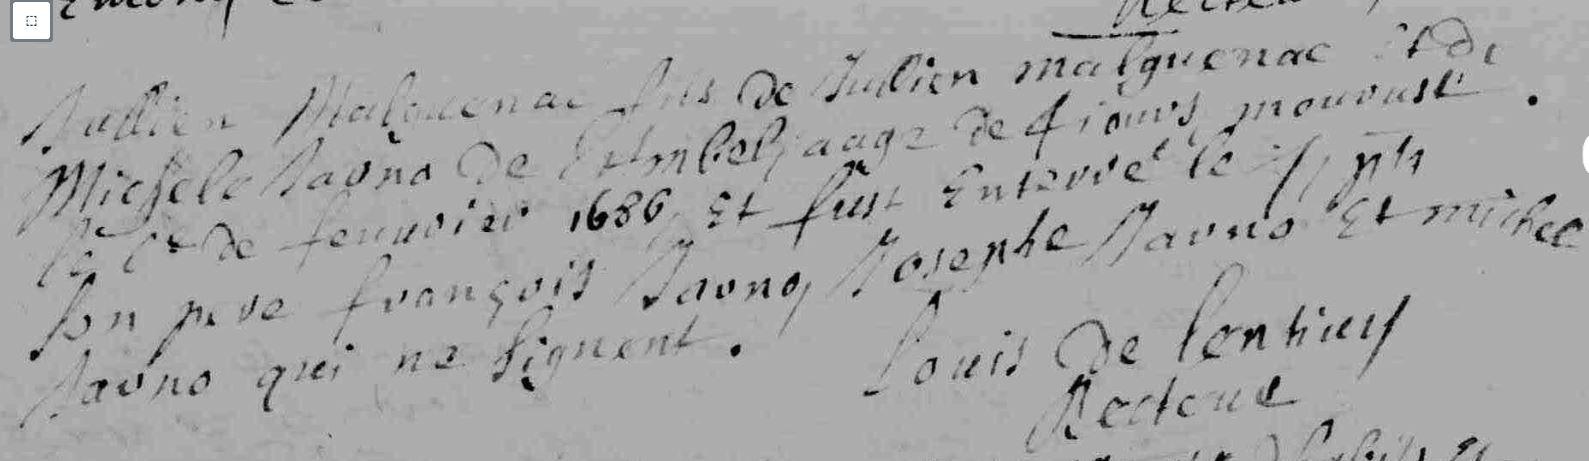 Jullien Malguenac fils de Jullien malguenac Et de
Michele Jaono De aage de 4 iours mourust
le 6e de feuurier 1686 Et fust Enterré le 7 pnts
son pere françois Jaono, Josephe Jaono Et michel
Jaono qui ne signent.
Louis De lentiuy
Recteur